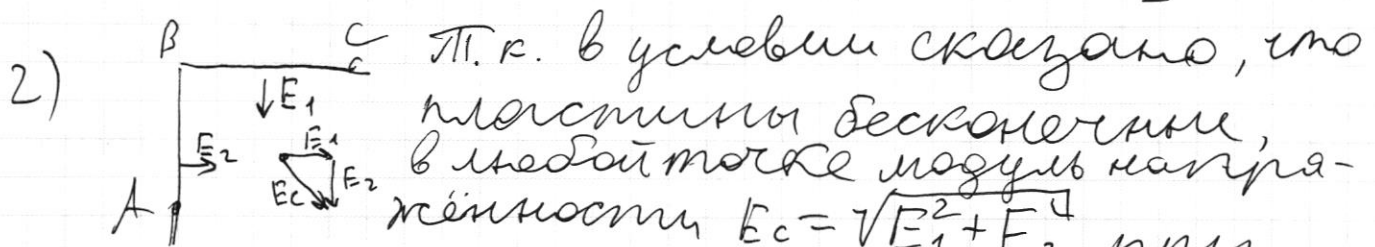 2)
B C
C
E1
E2
E1
Ec E2
A
Т.к. в условии сказано, что
пластины бесконечные,
в любой точке модуль напря-
жённости Ec = √E1² + E2